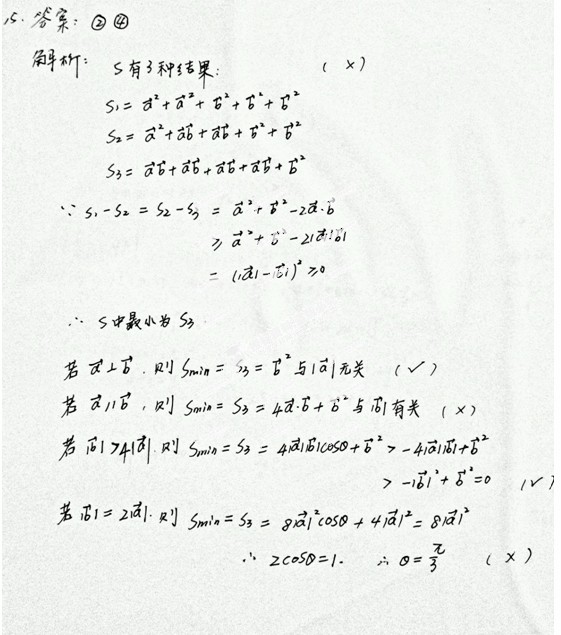 15. 答案: ②④
解析: S有3种结果: (×)
S₁= a⃗²+a⃗²+b⃗²+b⃗²+b⃗²
S₂= a⃗²+a⃗b⃗+a⃗b⃗+b⃗²+b⃗²
S₃= a⃗b⃗+a⃗b⃗+a⃗b⃗+a⃗b⃗+b⃗²
∵ S₁-S₂ = S₂-S₃ = a⃗²+b⃗²-2a⃗·b⃗
≥ a⃗²+b⃗²-2|a⃗||b⃗|
= (|a⃗|-|b⃗|)² ≥0
∴ S中最小为S₃
若a⃗⊥b⃗,则Smin = S₃ = b⃗²与|a⃗|无关 (✓)
若a⃗//b⃗,则Smin = S₃ = 4a⃗·b⃗+b⃗²与|b⃗|有关 (×)
若|b⃗|>4|a⃗|.则Smin = S₃ = 4|a⃗||b⃗|cosθ+b⃗² > -4|a⃗||b⃗|+b⃗²
> -|b⃗|²+b⃗²=0 (✓)
若|b⃗|=2|a⃗|.则Smin = S₃ = 8|a⃗|²cosθ+4|a⃗|²=8|a⃗|²
∴ 2cosθ=1. ∴ θ=π/3 (×)